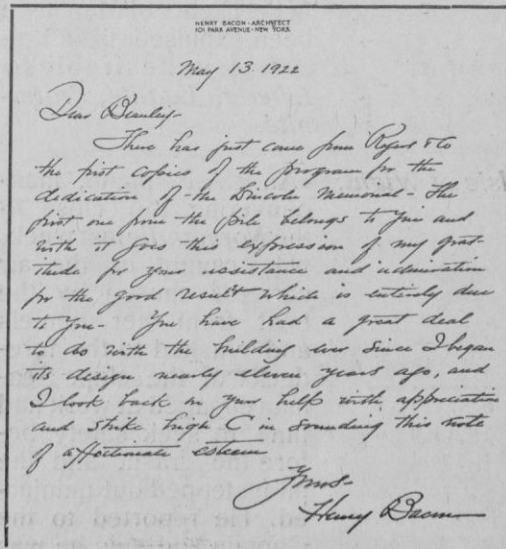 HENRY BACON - ARCHITECT
101 PARK AVENUE - NEW YORK
May 13. 1922
Dear
There has just come from Rogers & Co
the first copies of the program for the
dedication of the Lincoln Memorial - The
first one from the pile belongs to you and
with it goes this expression of my grat-
itude for your assistance and admiration
for the good result which is entirely due
to you - You have had a great deal
to do with the building ever since I began
its design nearly eleven years ago, and
I look back on your help with appreciation
and strike high C in sounding this note
of affectionate esteem
Yours -
Henry Bacon